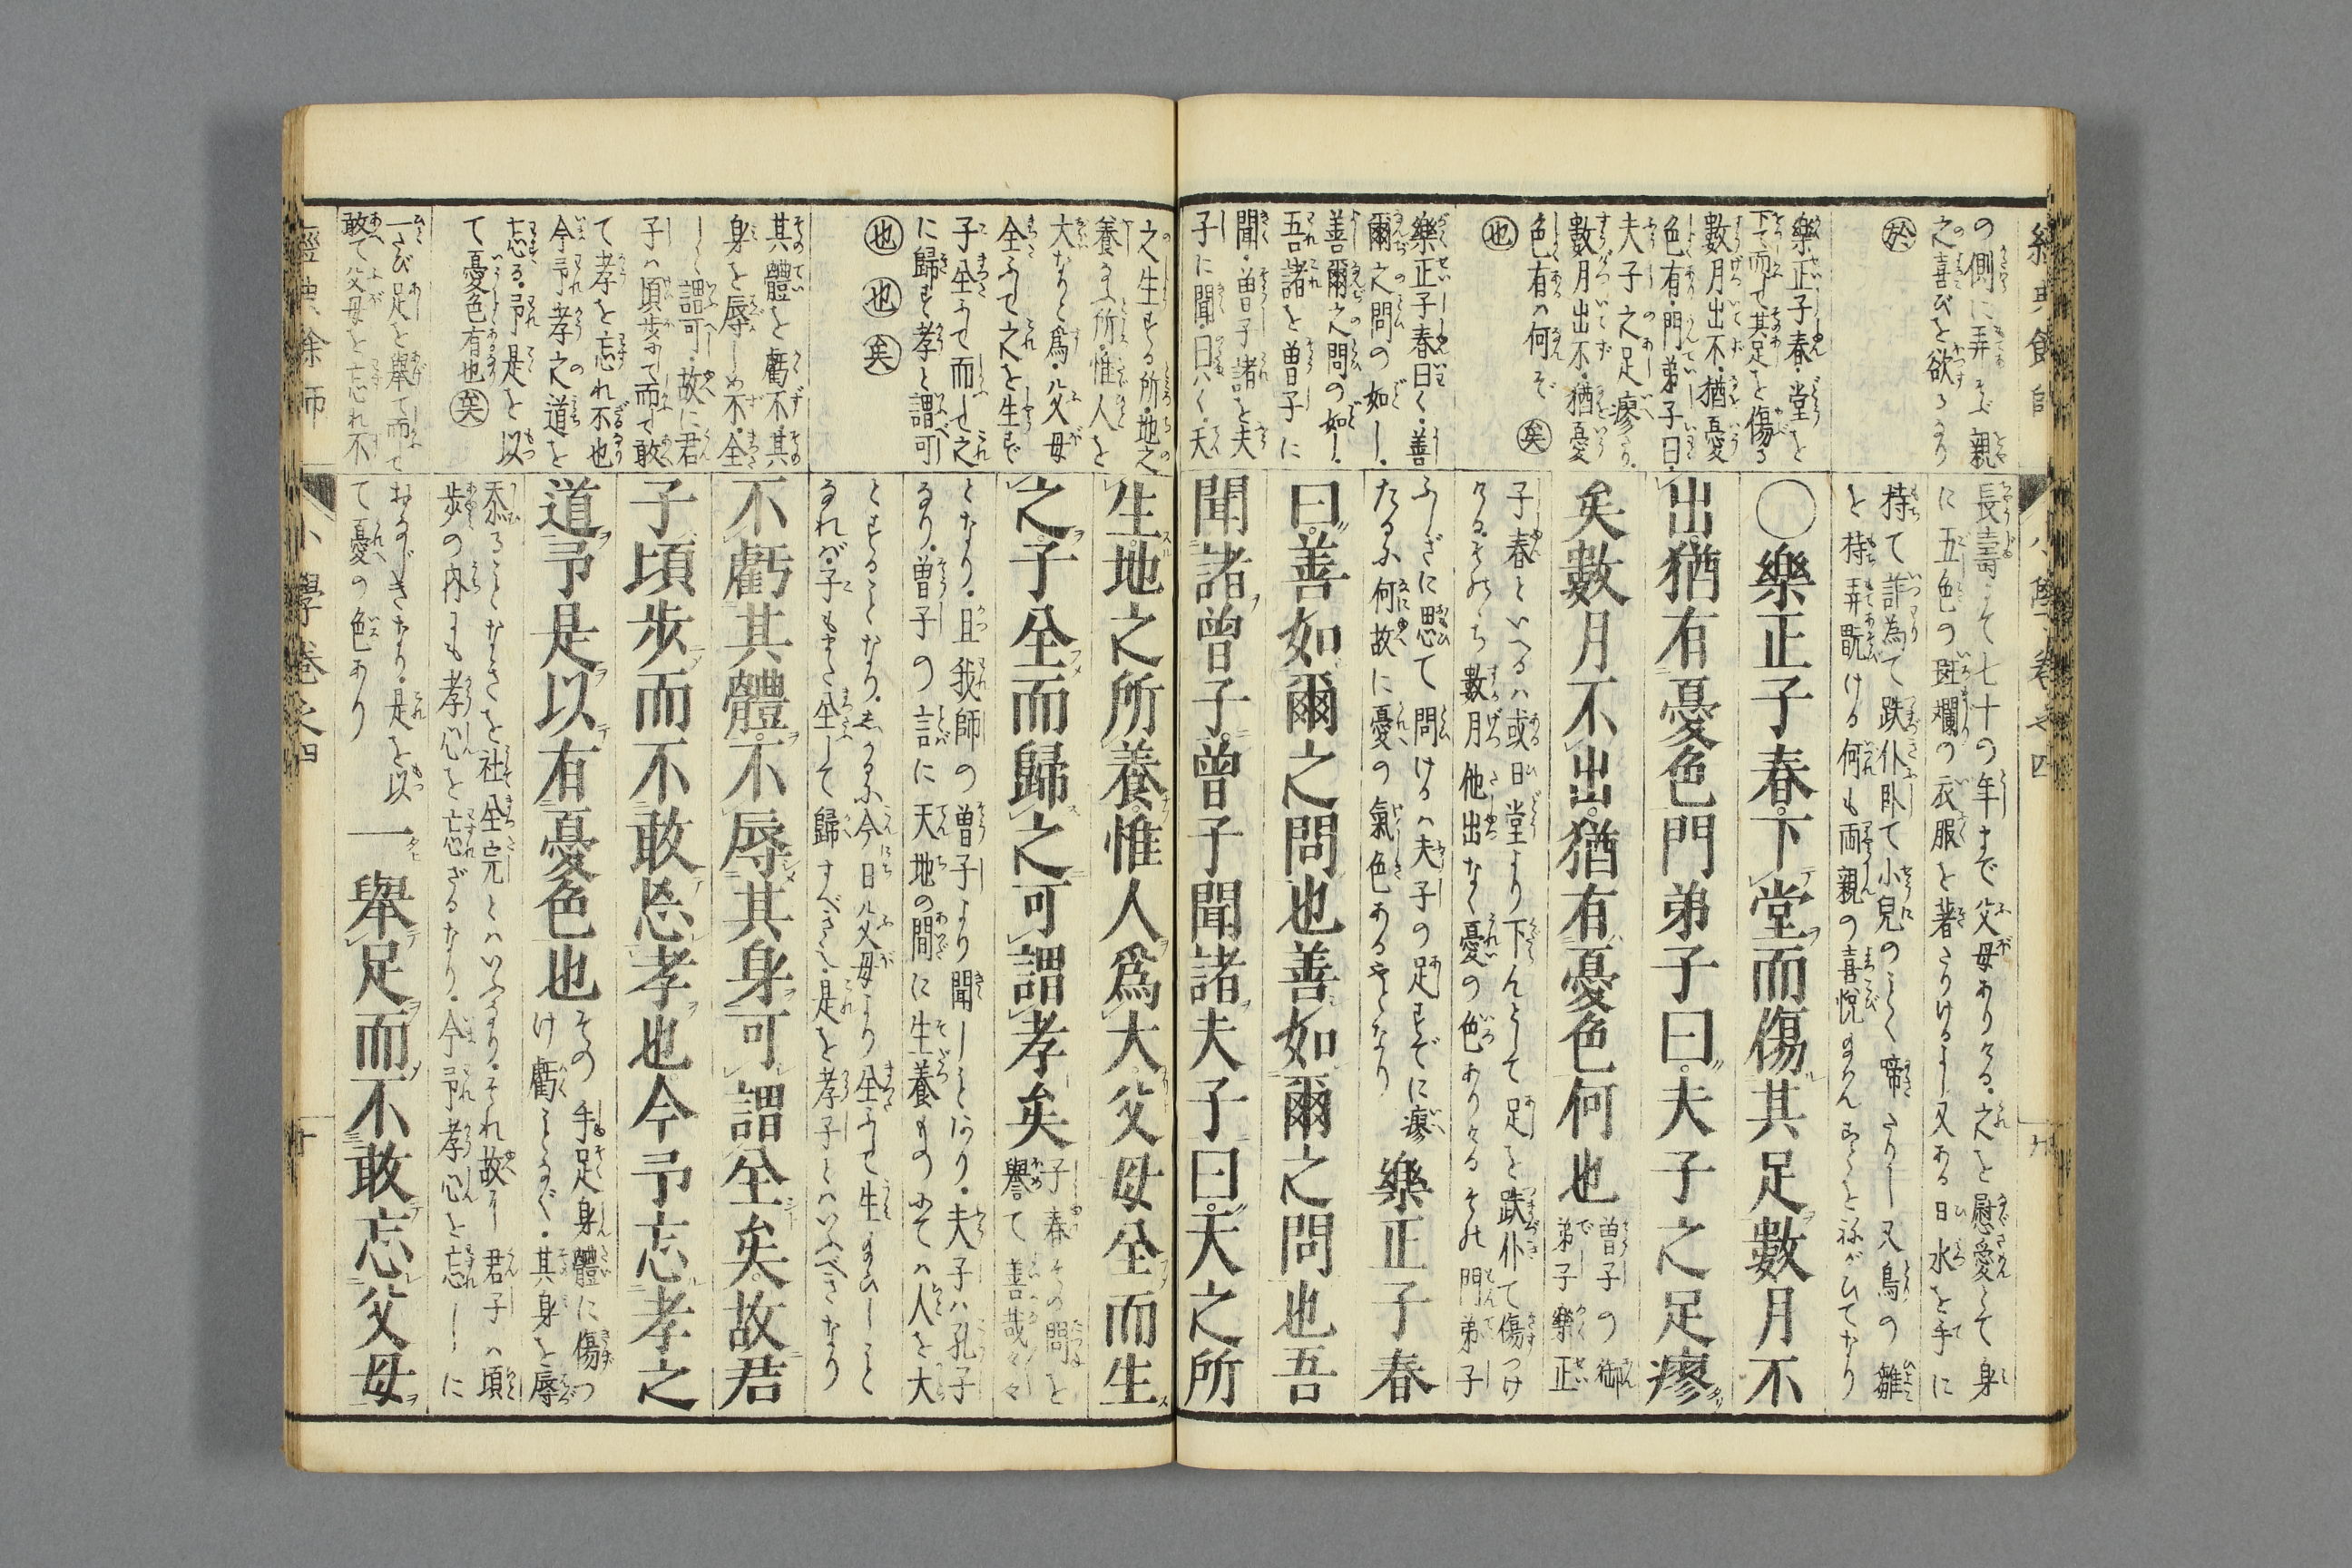 の側に弄そぶ親
之喜びを欲るなり
於
樂正子春堂を
下て而して其足を傷る
數月出不猶憂
色有門弟子曰
夫子之足瘳たり
數月出不猶憂
色有ハ何ぞ
矣
也
樂正子春曰く善
爾之問の如し
善爾之問の如し
吾諸を曽子に
聞曽子諸を夫
子に聞曰く天
長壽にて七十の年まで父母ありける之を慰愛とて身
に五色の斑斕の衣服を著さりけるよし又ある日水を手に
持て詐為て跌仆臥て小兒のことく啼たりし又鳥の雛
を持弄翫ける何も両親の喜悅
〇樂正子春下堂而傷其足數月不
出猶有憂色門弟子曰夫子之足瘳
矣數月不出猶有憂色何也
曽子の御
弟子樂正
子春といへるハ或日堂より下んとして足を跌仆て傷つけ
ける
數月他出なく憂の色ありける
門弟子
ふしぎに思て問けるハ夫子の足すでに瘳
たるに何故に憂の氣色あるやとなり
樂正子春
曰善如爾之問也善如爾之問也吾
聞諸曽子曽子聞諸夫子曰天之所
之生ずる所地之
養ふ所惟人を
大なりと爲父母
全ふして之を生ず
子全ふして而して之
に歸す孝と謂可
也
也
矣
其體を虧不其
身を辱しめ不全
しと謂可故に君
子ハ頃歩にして而て敢
て孝を忘れ不也
今予孝之道を
忘る予是を以
て憂色有也
矣
一たび足を舉て而して
敢て父母を忘れ不
生地之所養惟人爲大父母全而生
之子全而歸之可謂孝矣
子春その問を
譽て善哉々々
となり且我師の曽子より聞しことにあり夫子ハ孔子
なり曽子の言に天地の間に生養ものにてハ人を大
とすることなり
今日父母より全ふして生
こと
なれバ子もまた全ふして歸すべきこと是を孝子とハいふべきなり
不虧其體不辱其身可謂全矣故君
子頃歩而不敢忘孝也今予忘孝之
道予是以有憂色也
その手足身體に傷つ
け虧ことなく其身を辱
忝ることなきを社全完とハいふなりそれ故に君子ハ頃
歩の内にも孝心を忘ざるなり今予孝心を忘しに
是を以
て憂の色あり
一舉足而不敢忘父母
經典餘師
小學卷之四
十